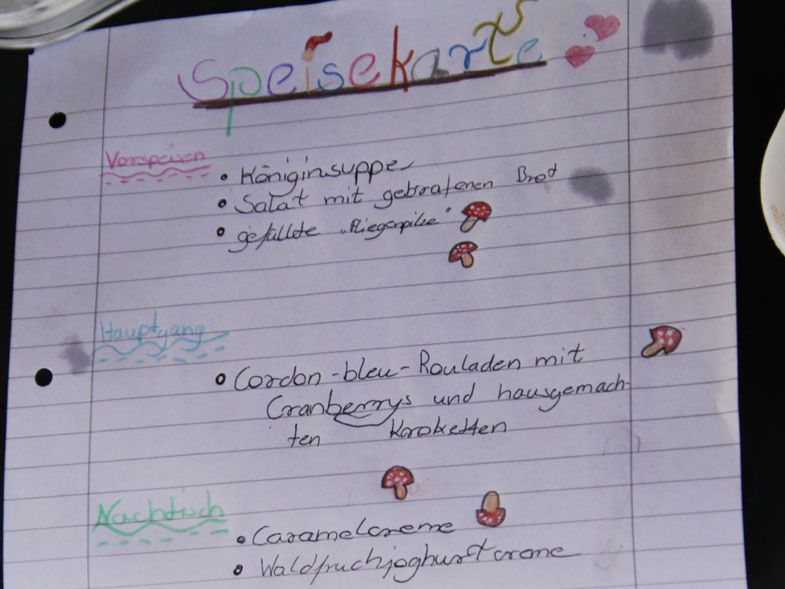 Speisekarte
Vorspeisen
• Königinsuppe
• Salat mit gebratenen Brot
• gefüllte „Fliegenpilze"
Hauptgang
• Cordon-bleu-Rouladen mit
Cranberrys und hausgemach-
ten Kroketten
Nachtisch
• Caramelcreme
• Waldfruchjoghurtcreme